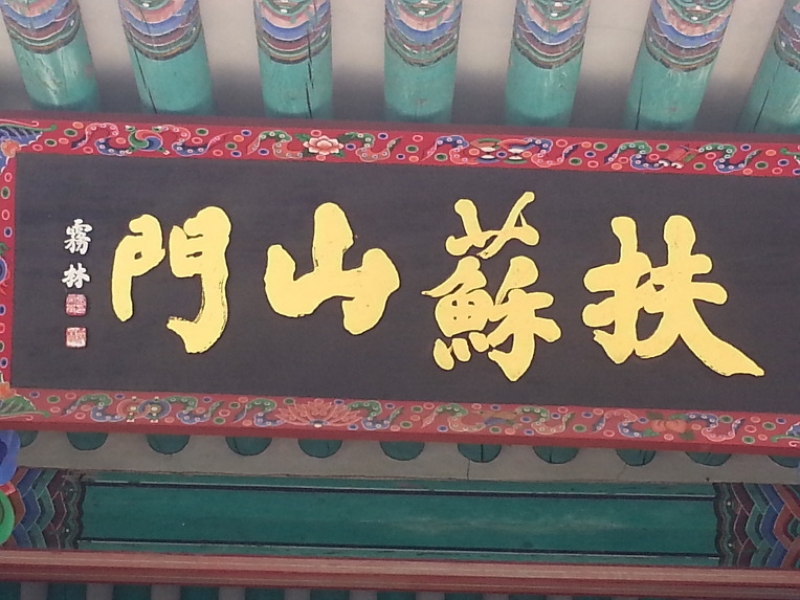 扶蘇山門
霧林